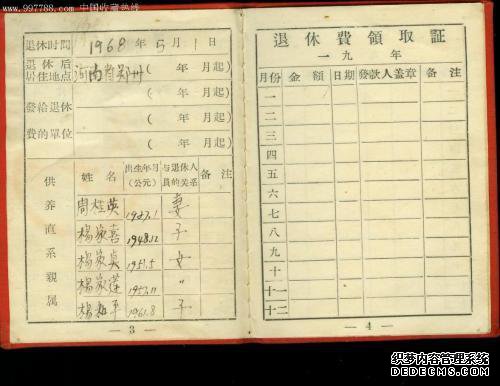 www.997788.com 中国收藏热线
退休时間 1968 年 5 月 1 日
退休后居住地点 河南省郑州 ( 年 月起)
( 年 月起)
發給退休費的單位 ( 年 月起)
( 年 月起)
供养直系親属
姓名 出生年月(公元) 与退休人員的关系 备注
周桂英 1927.1 妻
楊家喜 1948.12 子
楊家貞 1951.5 女
楊家蓮 1957.11 〃
楊和平 1961.8 子
— 3 —
退休費領取証
一九 年
月份 金額 日期 發款人盖章 备注
一
二
三
四
五
六
七
八
九
十
十一
十二
— 4 —
织梦内容管理系统
DEDECMS.COM